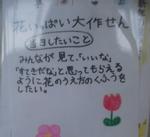 花いっぱい大作せん
直したいこと
みんなが見て、「いいな」
「すてきだな」と思ってもらえる
ように花のうえ方のくふうを
したい。